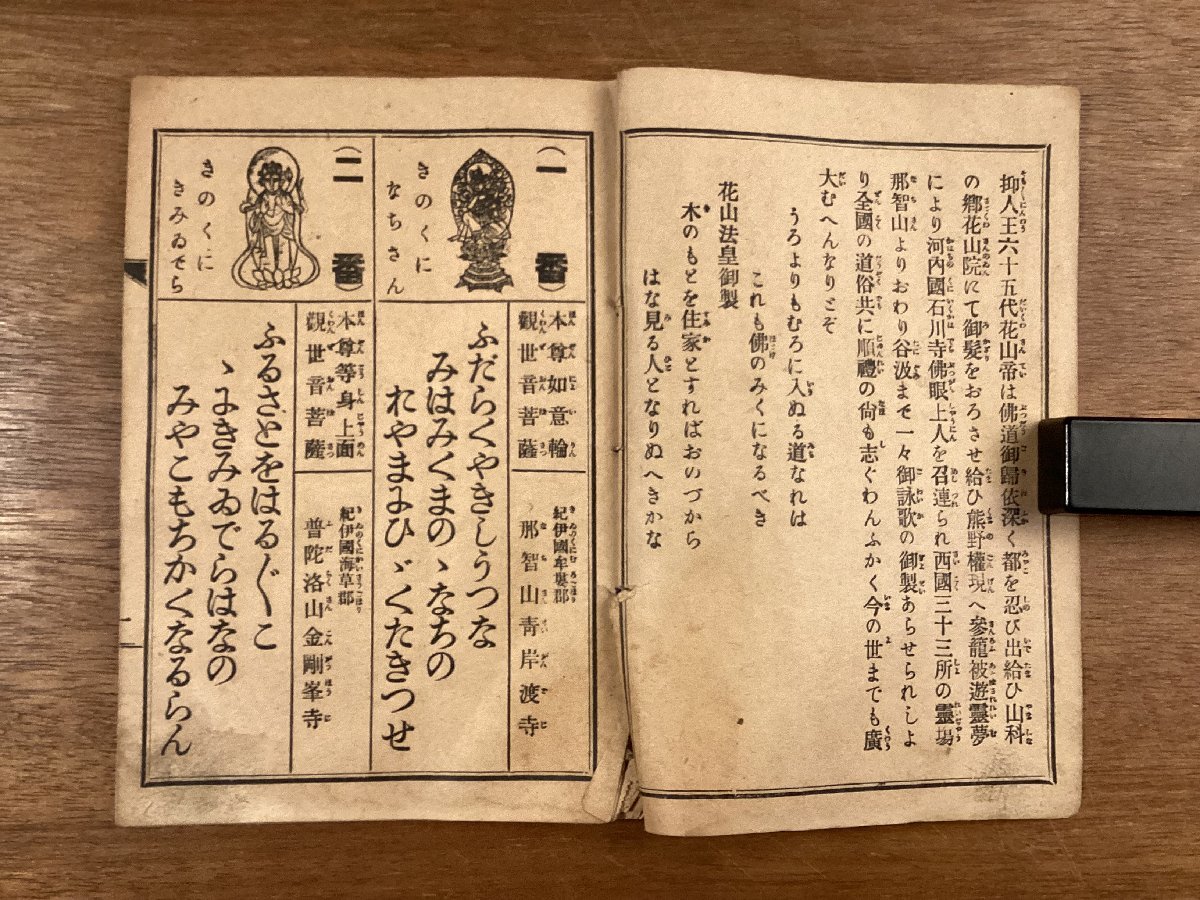 抑人王六十五代花山帝は佛道御歸依深く都を忍び出給ひ山科
の鄕花山院にて御髮をおろさせ給ひ熊野權現へ參籠被遊靈夢
により河內國石川寺佛眼上人を召連られ西國三十三所の靈場
那智山よりおわり谷汲まで一々御詠歌の御製あらせられしよ
り全國の道俗共に順禮の尙も志ぐわんふかく今の世までも廣
大むへんなりとぞ
うろよりもむろに入ぬる道なれは
これも佛のみくになるべき
花山法皇御製
木のもとを住家とすればおのづから
はな見る人となりぬへきかな
(一番)
きのくに
なちさん
本尊如意輪
觀世音菩薩
紀伊國牟婁郡
那智山靑岸渡寺
ふだらくやきしうつな
みはみくまのゝなちの
れやまにひゞくたきつせ
(二番)
きのくに
きみゐでら
本尊等身上面
觀世音菩薩
紀伊國海草郡
普陀洛山金剛峯寺
ふるさとをはる〴〵こ
ゝにきみゐでらはなの
みやこもちかくなるらん